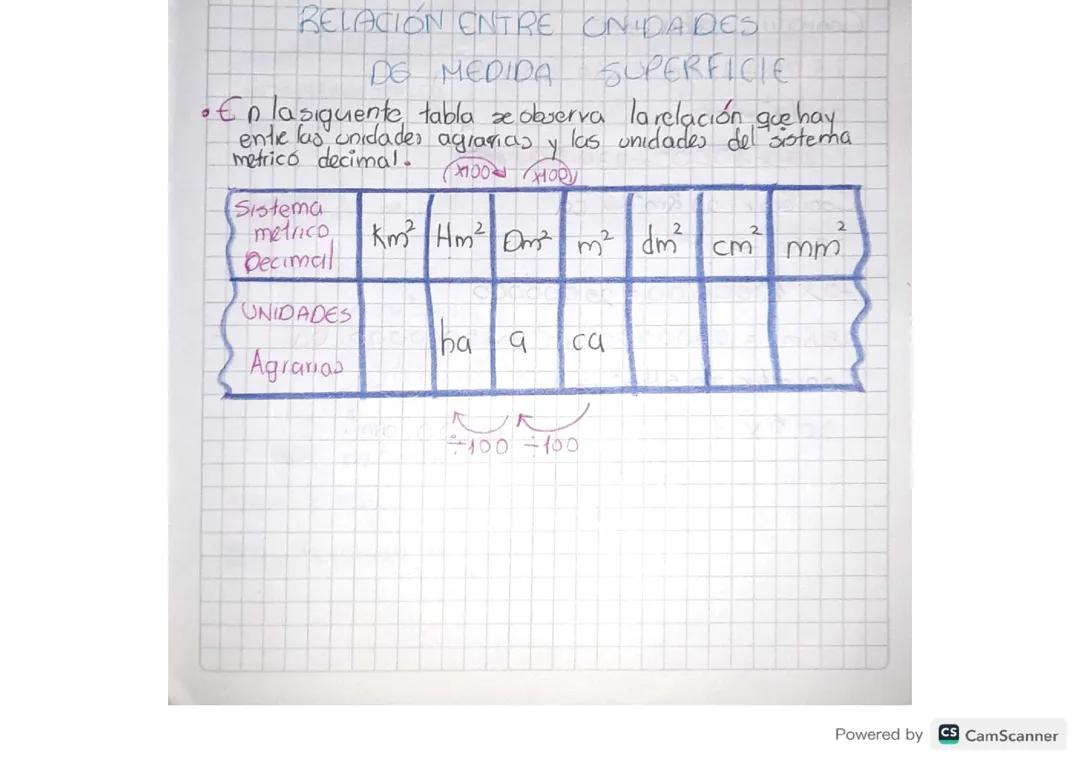 RELACIÓN ENTRE UNIDADES
DE MEDIDA SUPERFICIE
• En la siguente tabla se observa la relación que hay
entre las unidades agrarias y las unidades del sistema
metrico decimal.
x100 x100
Sistema
metrico
Decimal
Km² Hm² Dm² m² dm² cm² mm²
UNIDADES
Agrarias
ha a ca
÷100 ÷100
Powered by CS CamScanner